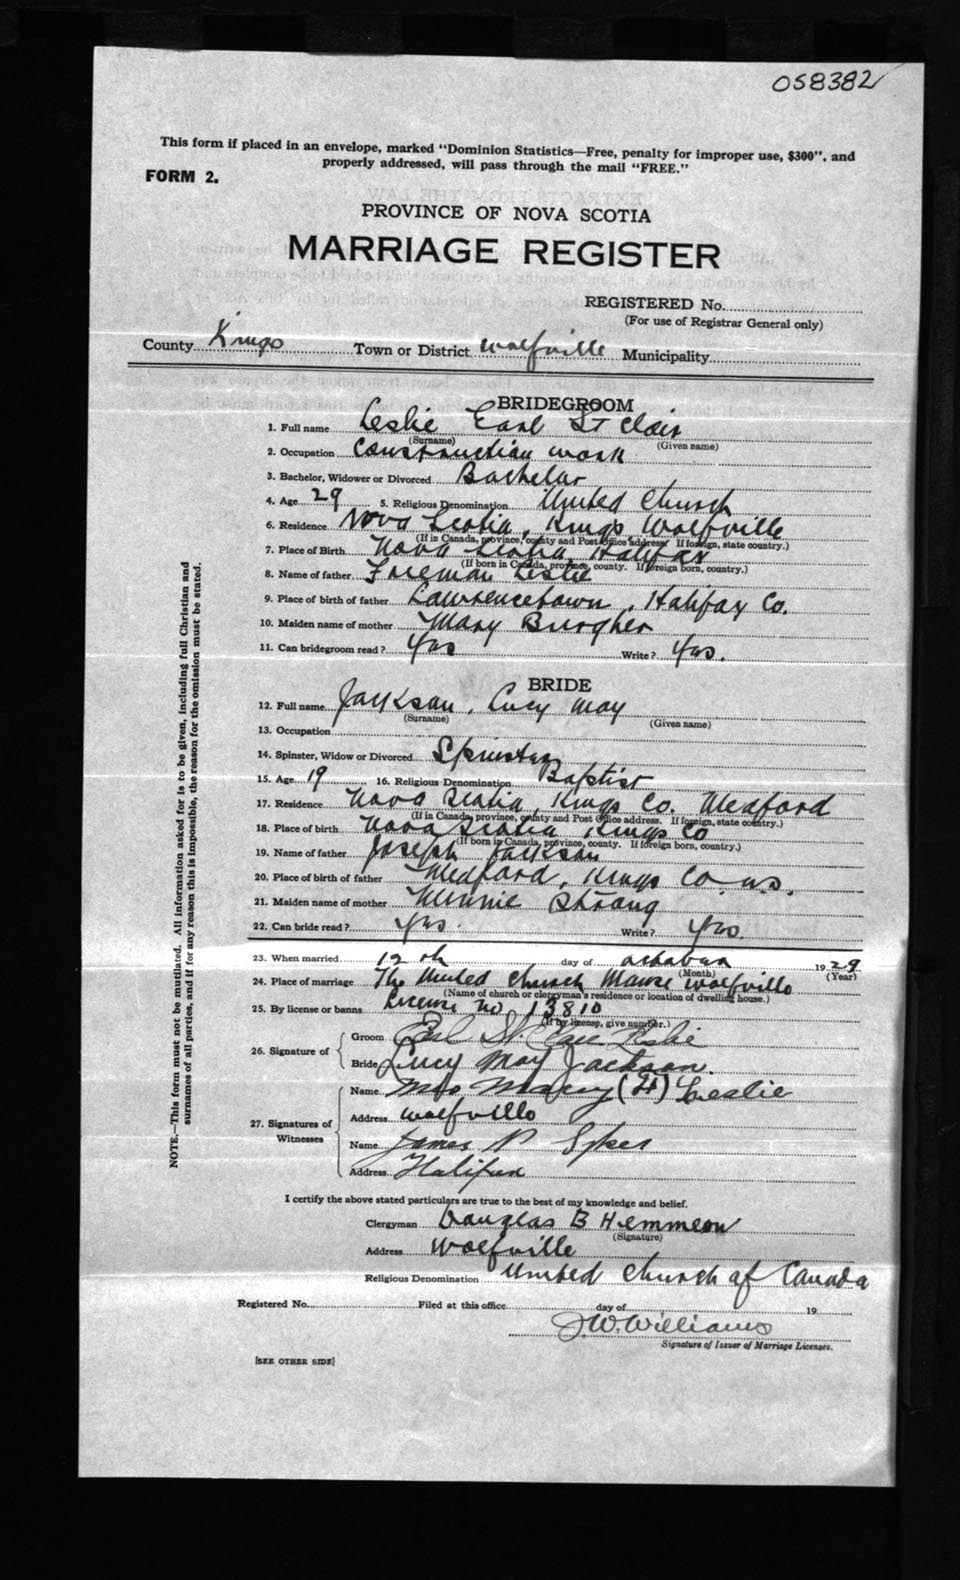 058382
This form if placed in an envelope, marked "Dominion Statistics—Free, penalty for improper use, $300", and
properly addressed, will pass through the mail "FREE."
FORM 2.
PROVINCE OF NOVA SCOTIA
MARRIAGE REGISTER
REGISTERED No.
(For use of Registrar General only)
County Kings Town or District Wolfville Municipality
BRIDEGROOM
1. Full name Leslie Earl St Clair
(Surname) (Given name)
2. Occupation Construction work
3. Bachelor, Widower or Divorced Bachelor
4. Age 29 5. Religious Denomination United Church
6. Residence Nova Scotia, Kings Wolfville
(If in Canada, province, county and Post Office address. If foreign, state country.)
7. Place of Birth Nova Scotia Halifax
(If born in Canada, province, county. If foreign born, country.)
8. Name of father Freeman Leslie
9. Place of birth of father Lawrencetown, Halifax Co.
10. Maiden name of mother Mary Burgher
11. Can bridegroom read? Yes Write? Yes.
BRIDE
12. Full name Jackson, Lucy May
(Surname) (Given name)
13. Occupation
14. Spinster, Widow or Divorced Spinster
15. Age 19 16. Religious Denomination Baptist
17. Residence Nova Scotia, Kings Co. Medford
(If in Canada, province, county and Post Office address. If foreign, state country.)
18. Place of birth Nova Scotia Kings Co
(If born in Canada, province, county. If foreign born, country.)
19. Name of father Joseph Jackson
20. Place of birth of father Medford, Kings Co. N.S.
21. Maiden name of mother Minnie Strong
22. Can bride read? Yes. Write? Yes.
23. When married 12 th day of October 1929
(Month) (Year)
24. Place of marriage The United Church Manse Wolfville
(Name of church or clergyman's residence or location of dwelling house.)
25. By license or banns License no 13810
(If by license, give number.)
26. Signature of
Groom Earl St. Clair Leslie
Bride Lucy May Jackson.
27. Signatures of Witnesses
Name Mrs Mary (H) Leslie
Address Wolfville
Name James P Sykes
Address Halifax
I certify the above stated particulars are true to the best of my knowledge and belief.
Clergyman Douglas B Hemmeon
(Signature)
Address Wolfville
Religious Denomination United Church of Canada
Registered No. Filed at this office day of 19
J.W. Williams
Signature of Issuer of Marriage Licenses.
[SEE OTHER SIDE]
NOTE.—This form must not be mutilated. All information asked for is to be given, including full Christian and
surnames of all parties, and if for any reason this is impossible, the reason for the omission must be stated.